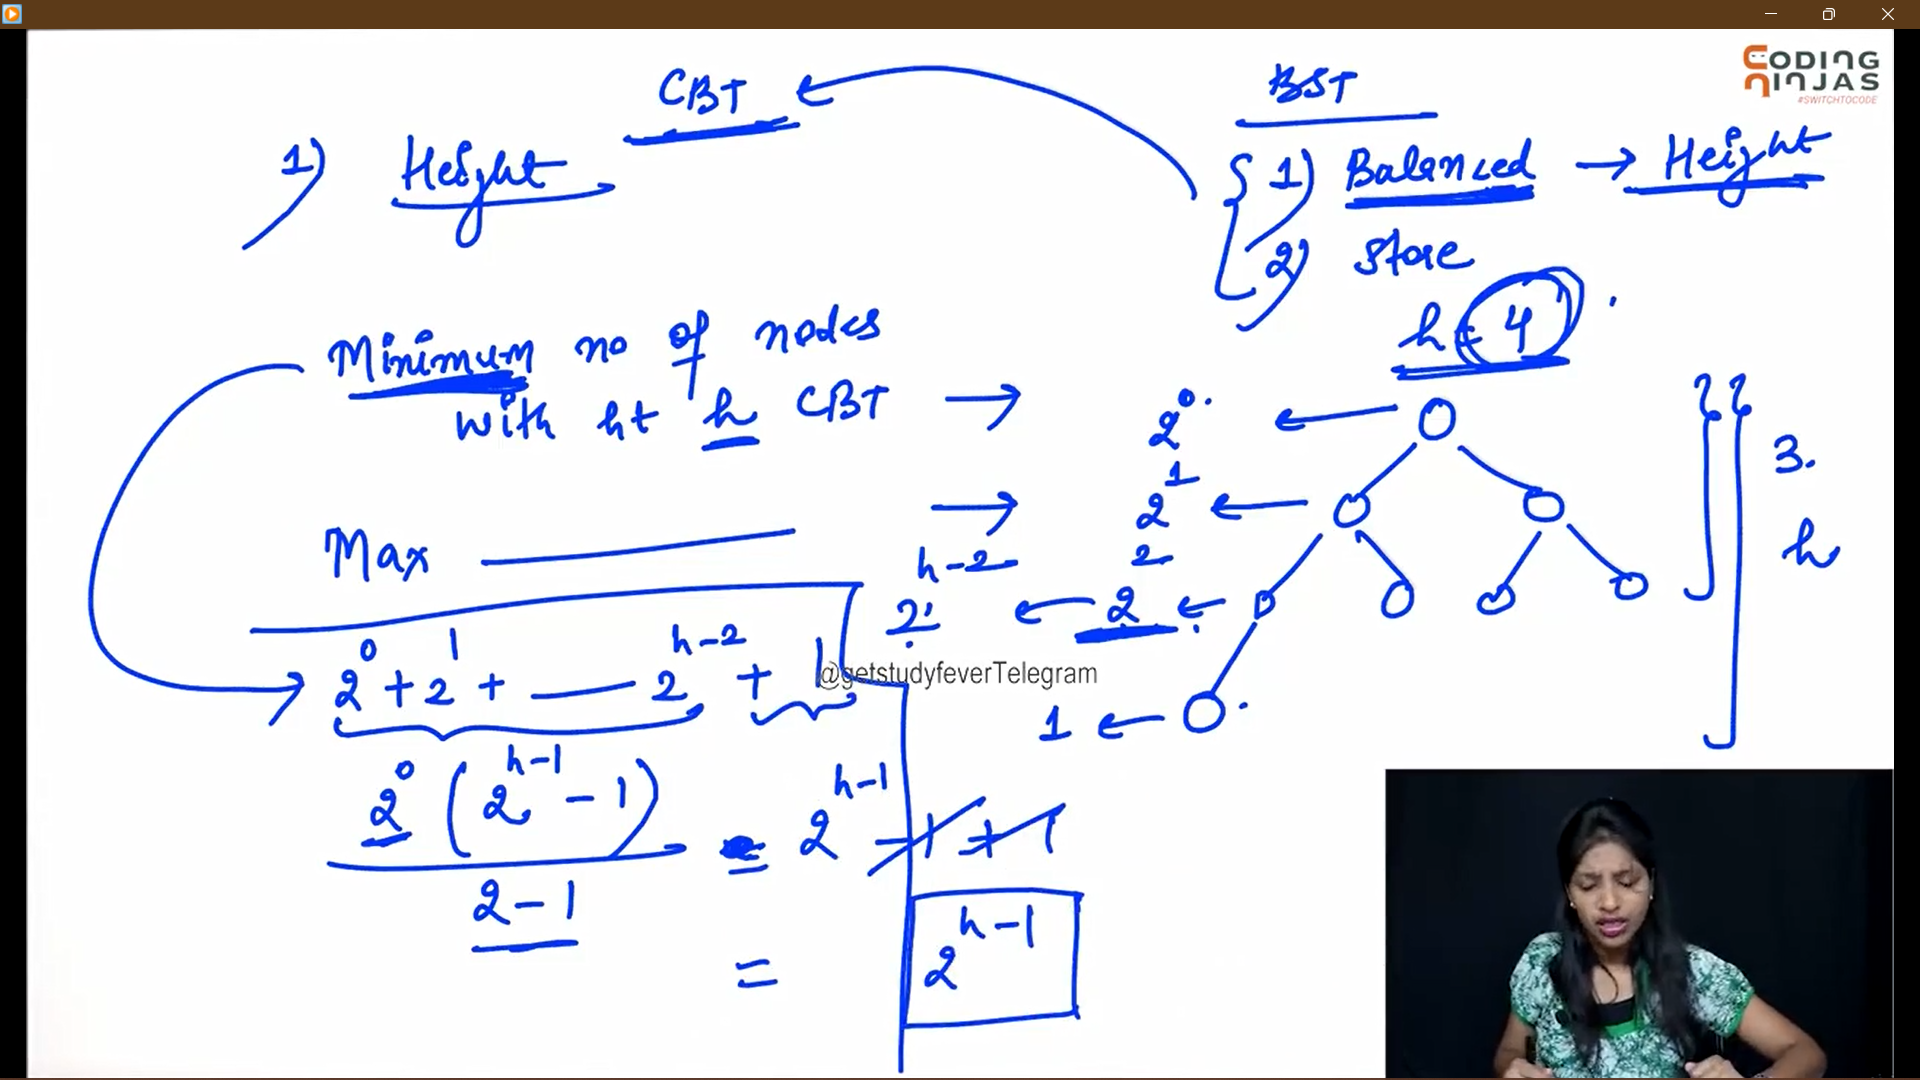 CODING
NINJAS
#SWITCHTOCODE
CBT
BST
1) Height
1) Balenced → Height
2) Store
h = 4
Minimum no of nodes
with ht h CBT →
2^0
3.
2^1
h
Max →
2^(h-2) ← 2^2 ←
2^0 + 2^1 + — 2^(h-2) + 1
@getstudyfeverTelegram
1 ←
2^0 (2^(h-1) - 1) = 2^(h-1) - 1 + 1
2 - 1
= 2^(h-1)